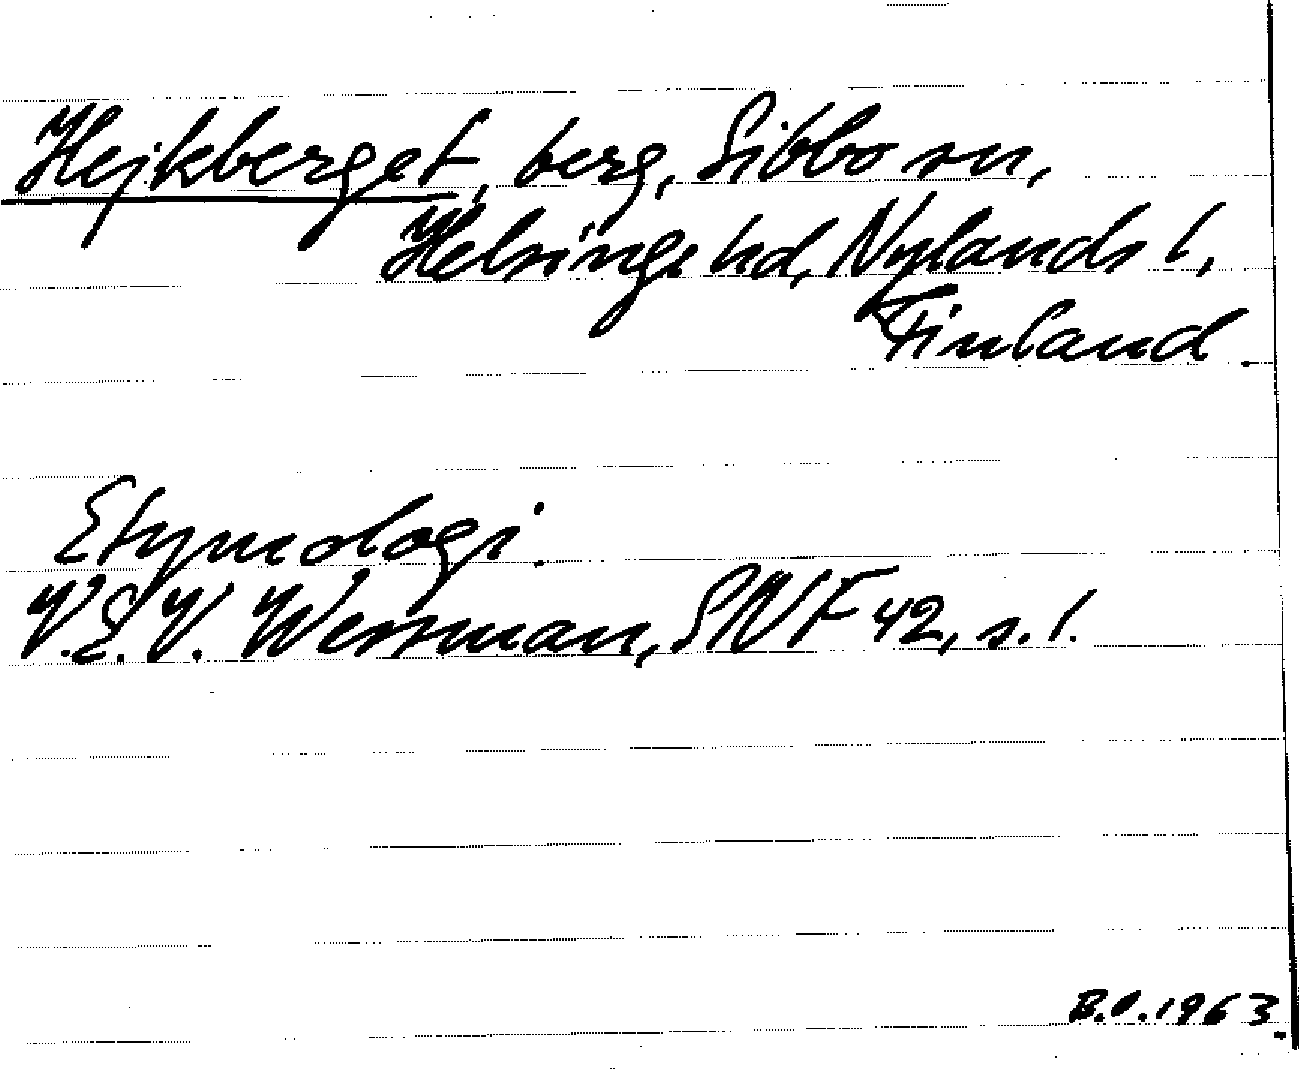 Hejkberget, berg, Sibbo sn,
Helsinge hd, Nylands l,
Finland.
Etymologi.
V.E.V. Wessman, SNF 42, s. 1.
B.O. 1963.